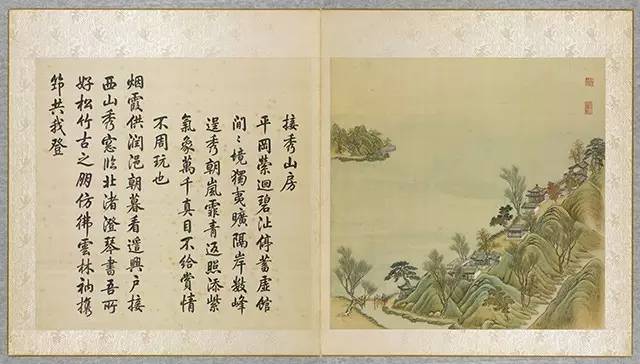 接秀山房
平岡縈迴碧沚停蓄虛館
閒〻境獨夷曠隔岸數峰
逞秀朝嵐霏青返照添紫
氣象萬千真目不給賞情
不周玩也
烟霞供潤浥朝暮看遙興戶接
西山秀窓臨北渚澄琴書吾所
好松竹古之朋仿彿雲林衲攜
筇共我登